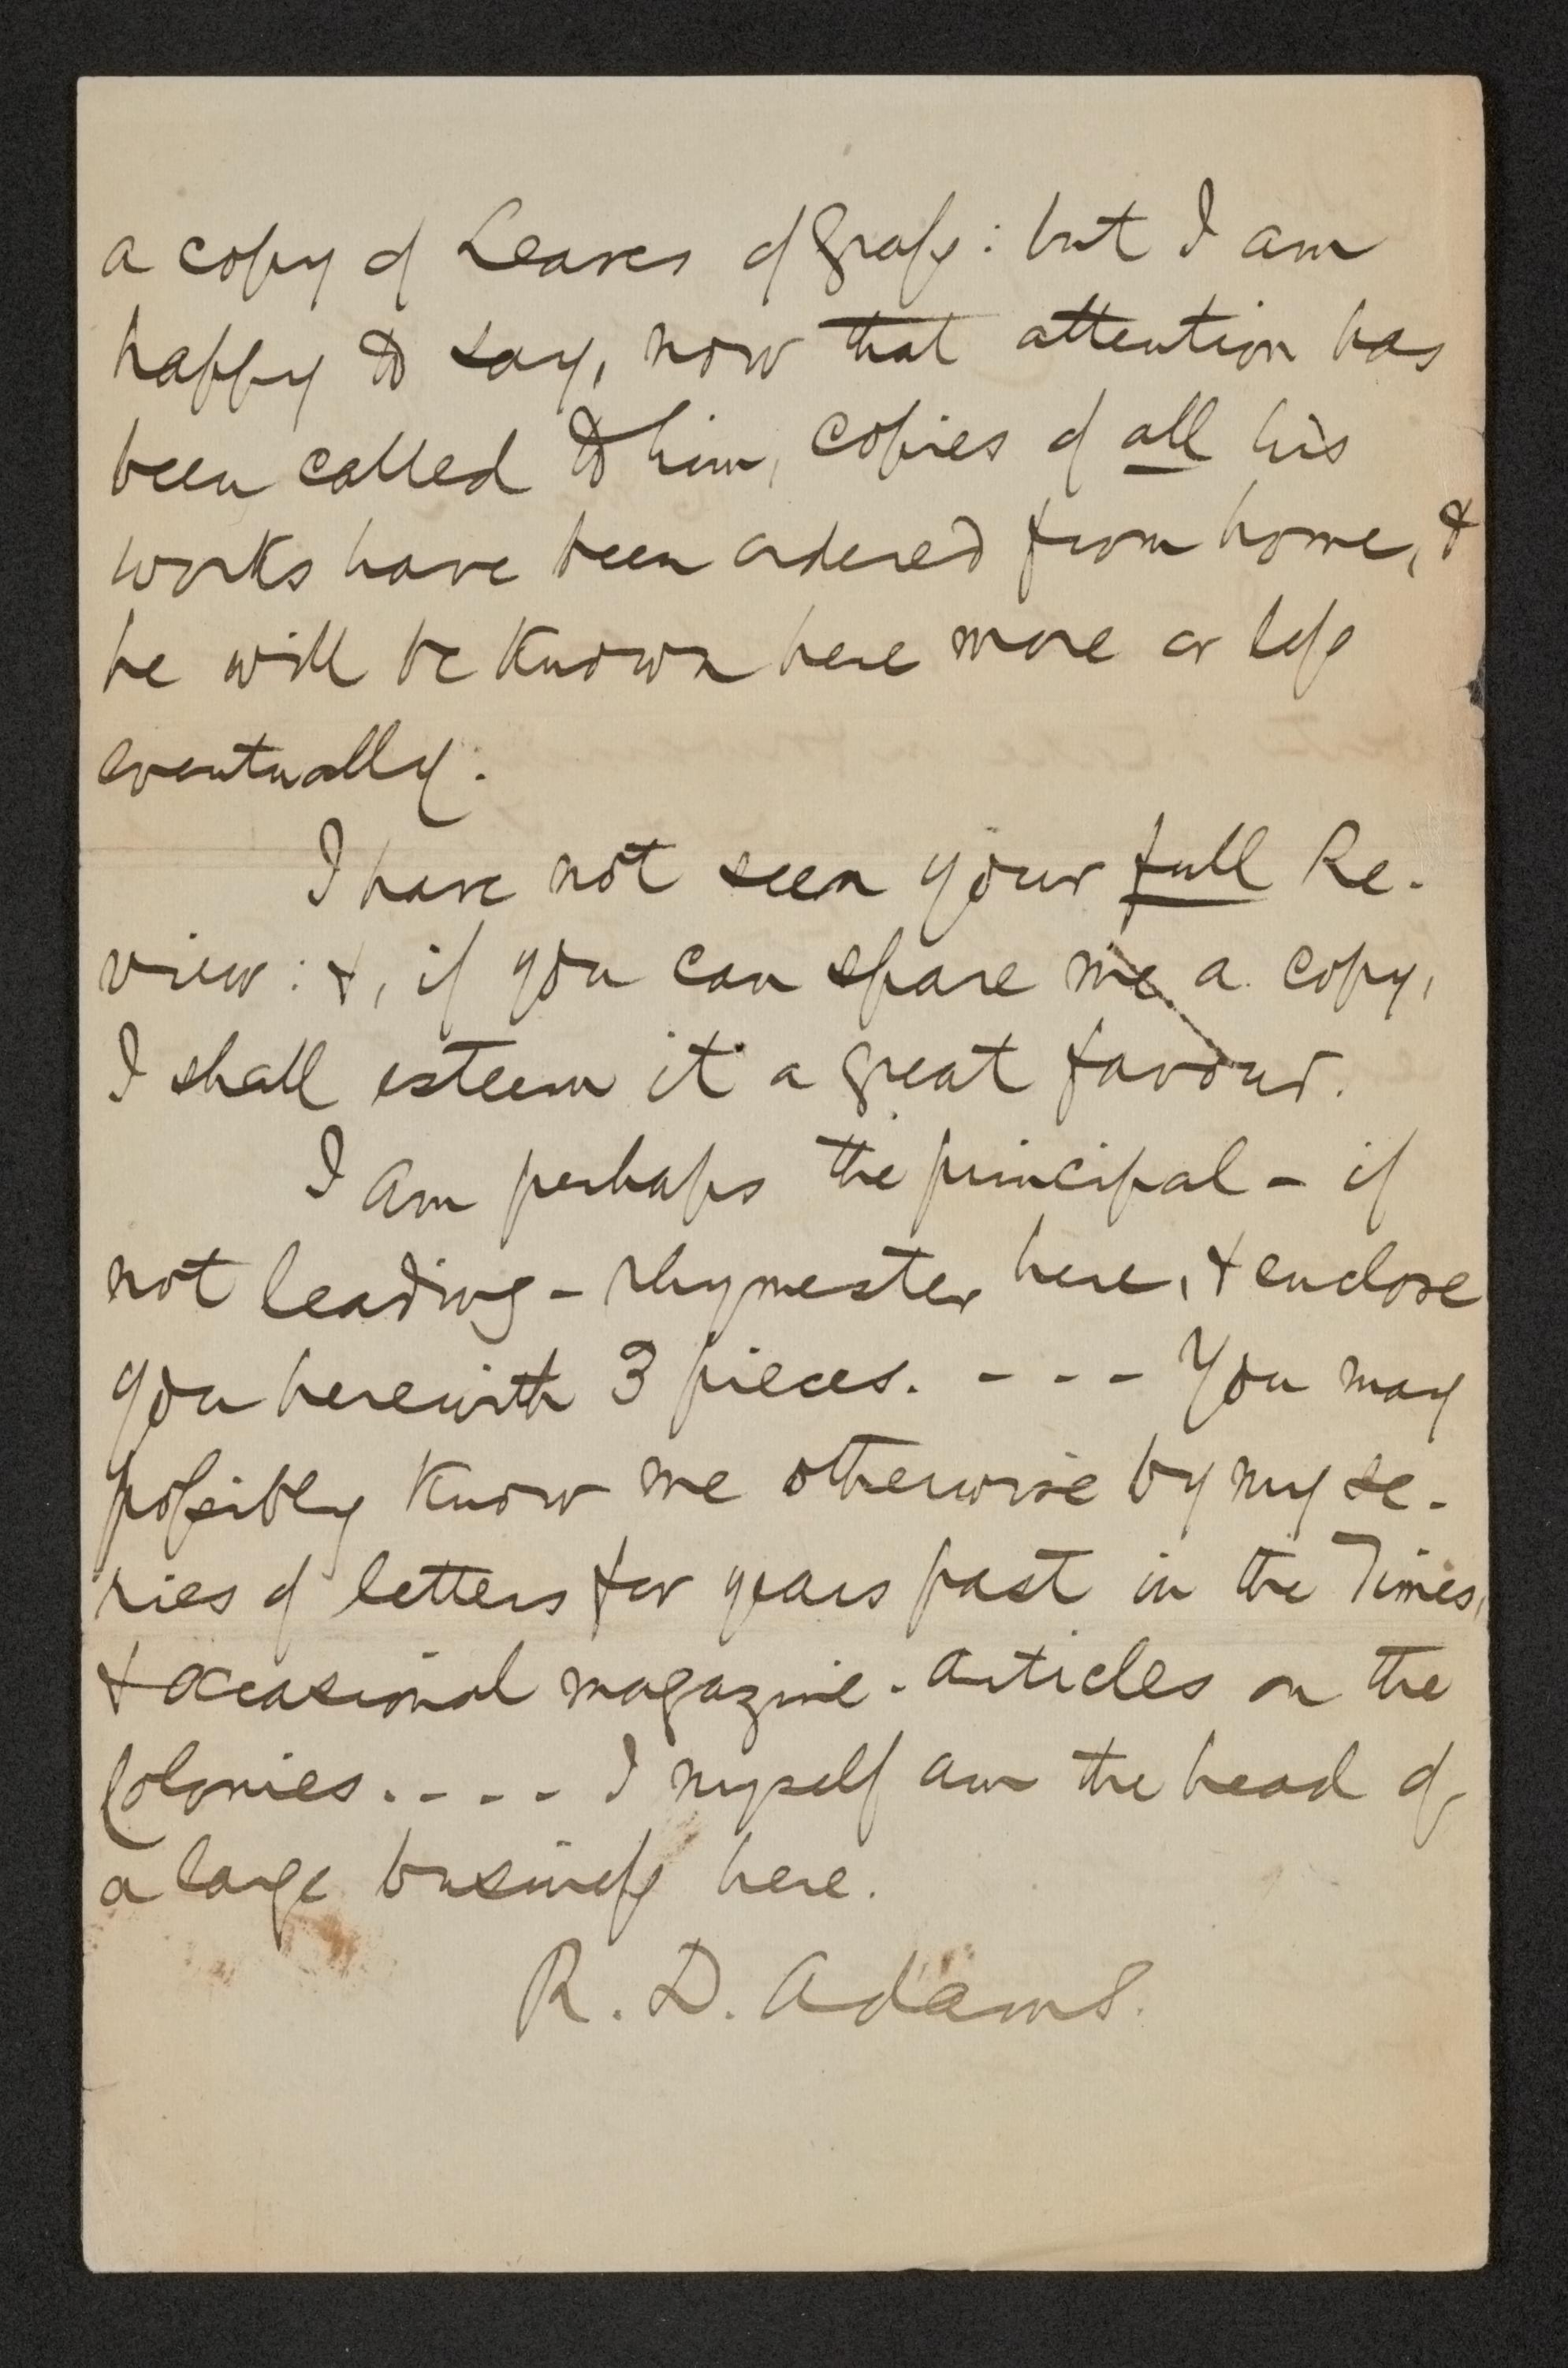 a copy of Leaves of Grass: but I am
happy to say, now that attention has
been called to him, copies of all his
works have been ordered from home, &
he will be known here more or less
eventually.
I have not seen your full Re-
view: &, if you can spare me a copy,
I shall esteem it a great favour.
I am perhaps the principal - if
not leading - rhymester here, & enclose
you herewith 3 pieces. - - - You may
possibly know me otherwise by my se-
ries of letters for years past in the Times,
& occasional magazine-articles on the
Colonies. - - - I myself am the head of
a large business here.
R. D. Adams.